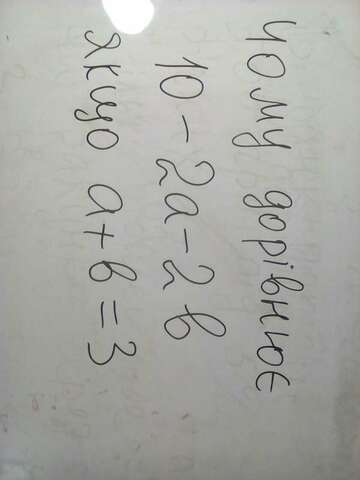 чому дорівнює
10 - 2а - 2в
якщо а + в = 3